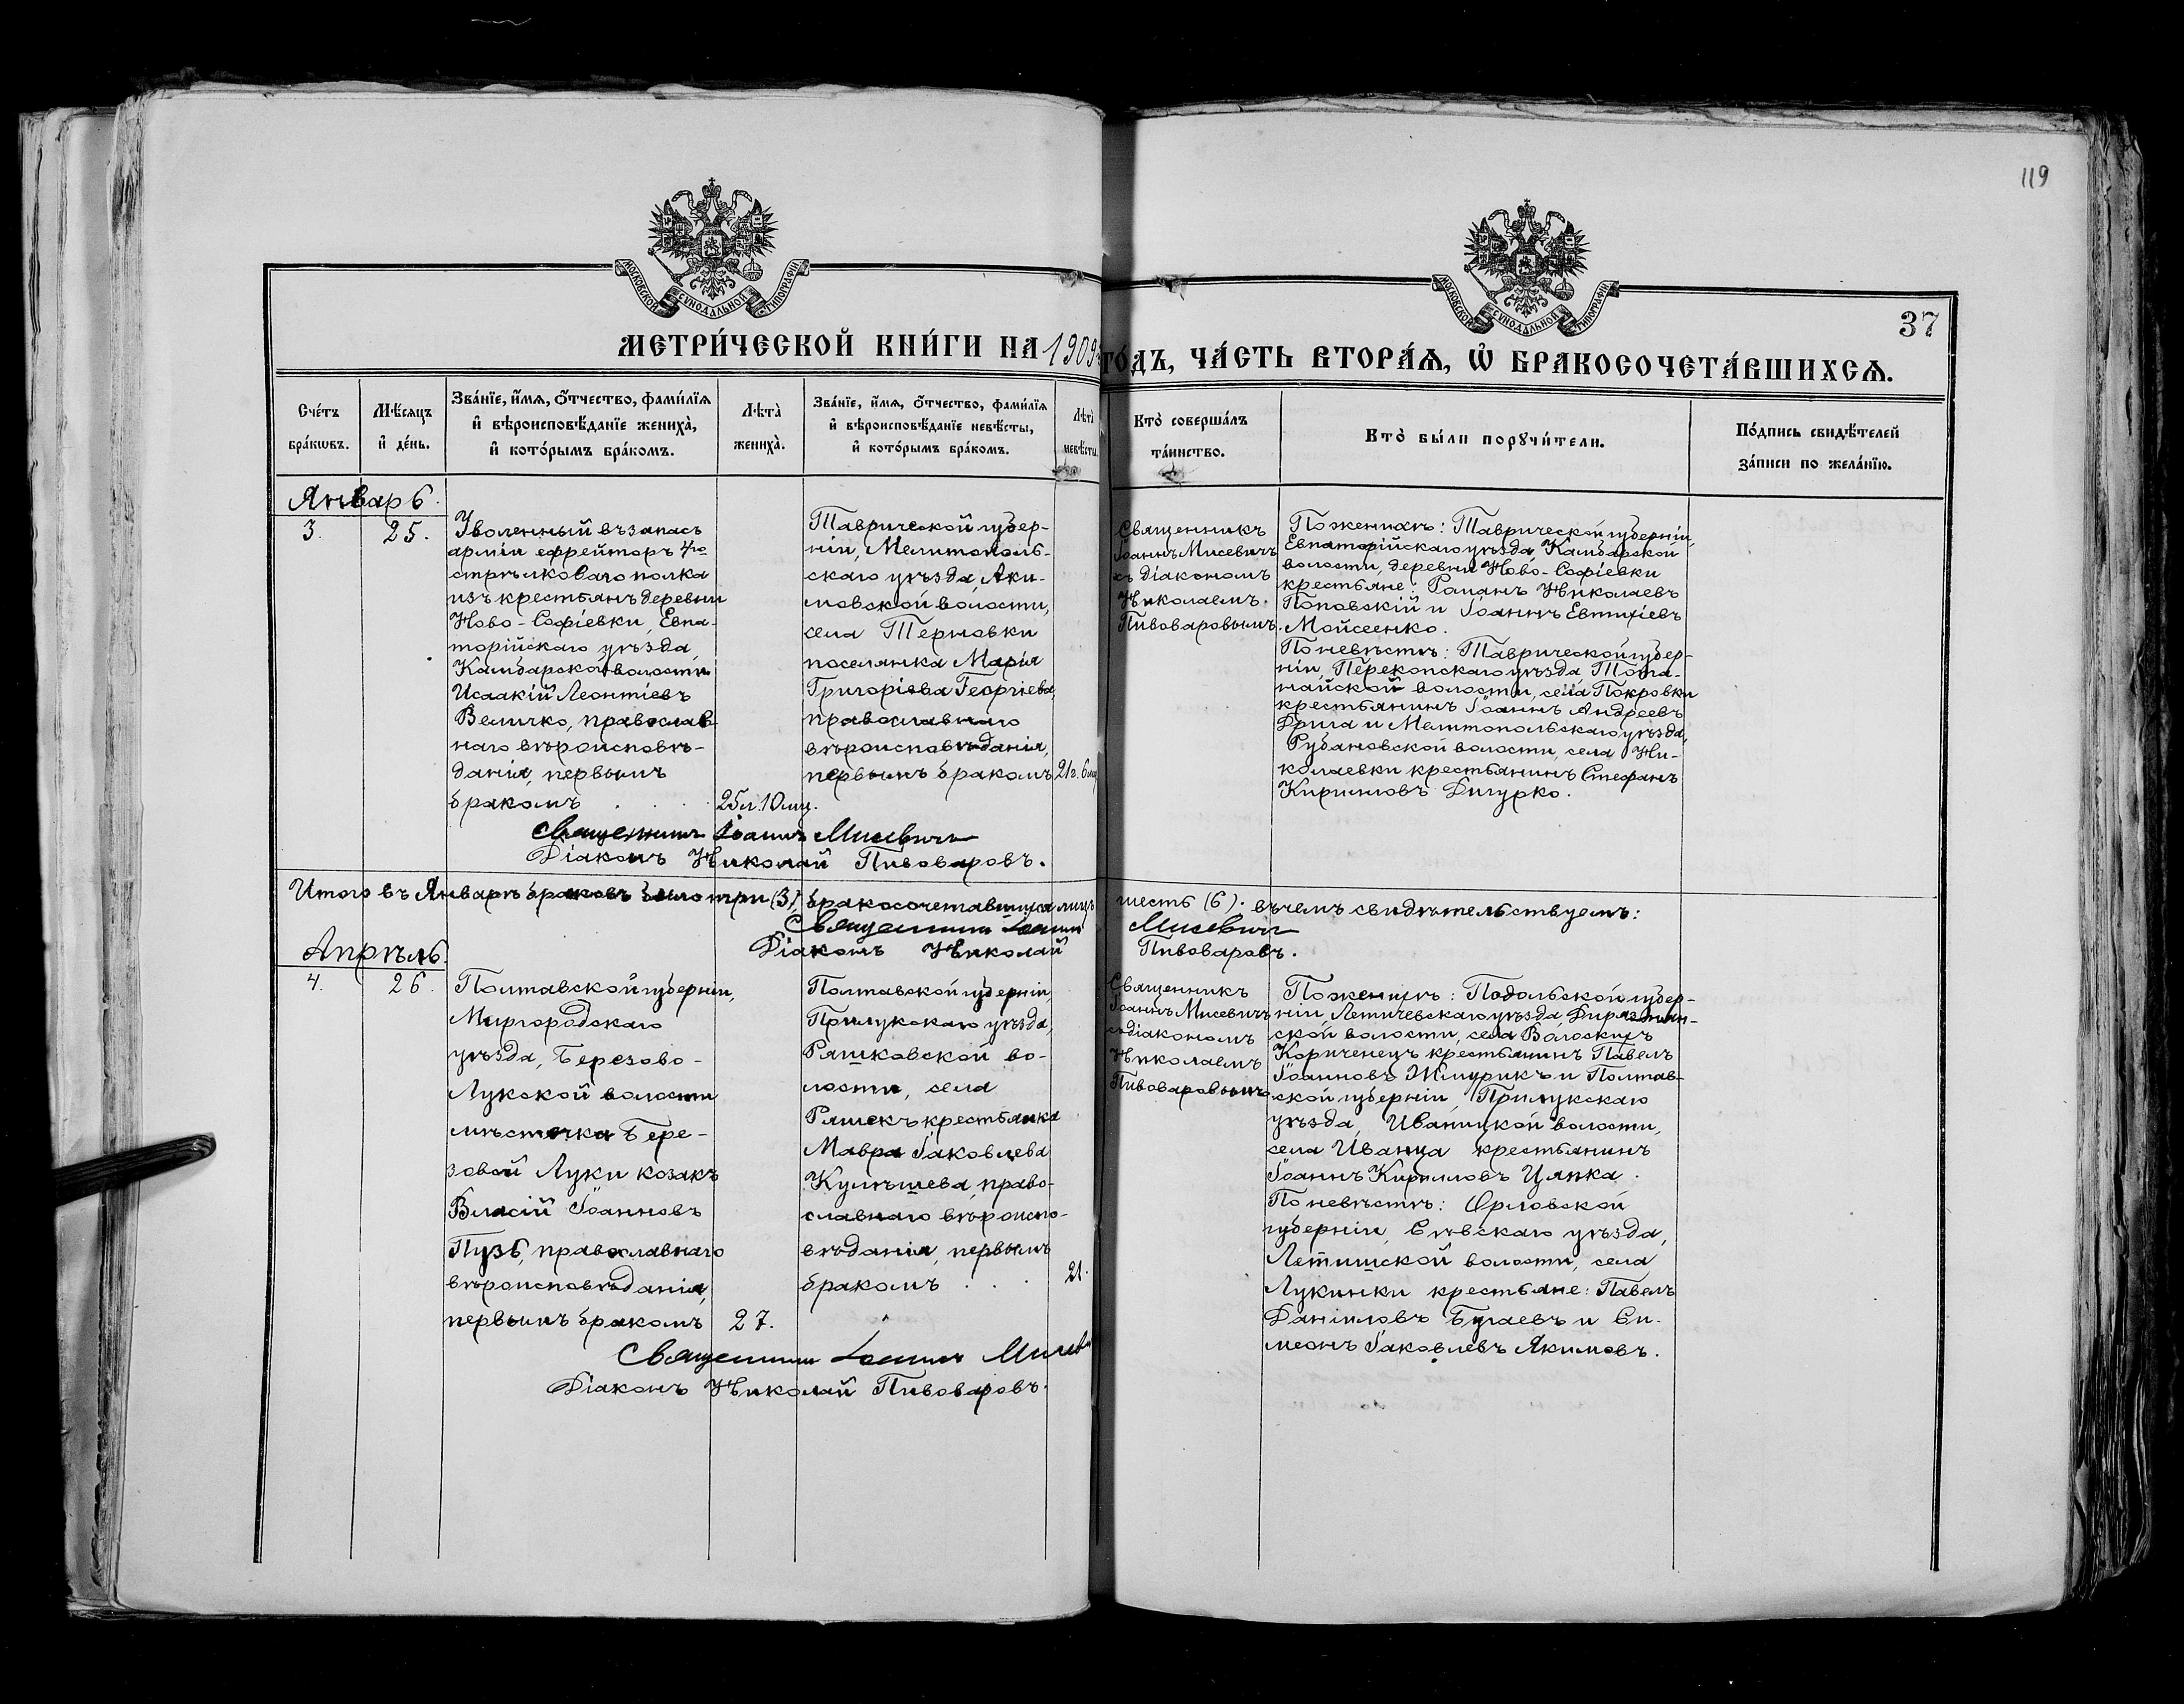 119
МОСКОВСКОЙ СУНОДАЛЬНОЙ ТИПОГРАФІИ
МОСКОВСКОЙ СУНОДАЛЬНОЙ ТИПОГРАФІИ
37
МЕТРИ́ЧЕСКОЙ КНИ́ГИ НА 1909 ГО́ДЪ, ЧА́СТЬ ВТОРА́Ѧ, Ѽ БРАКОСОЧЕТА́ВШИХСѦ.
Сче́тъ
бра́кѡвъ.
Мѣ́сѧцъ
и҆ де́нь.
Зва́нїе, и҆́мѧ, ѻ҆́тчество, фами́лїѧ
и҆ вѣроисповѣ́данїе жениха̀,
и҆ кото́рымъ бра́комъ.
Лѣта̀
жениха̀.
Зва́нїе, и҆́мѧ, ѻ҆́тчество, фами́лїѧ
и҆ вѣроисповѣ́данїе невѣ́сты,
и҆ кото́рымъ бра́комъ.
Лѣта̀
невѣ́сты.
Кто̀ соверша́лъ
та́инство.
Кто̀ бы́ли порꙋчи́тели.
По́дпись свидѣ́телей
за́писи по жела́нїю.
Январь.
3.
25.
Уволенный въ запасъ
арміи ефрейторъ 4го
стрѣлковаго полка
изъ крестьянъ деревни
Ново-Софіевки, Евпа-
торійскаго уѣзда,
Камбарской волости
Исаакій Леонтіевъ
Величко, православ-
наго вѣроисповѣ-
данія, первымъ
бракомъ . . .
25л. 10мц.
Таврической губер-
ніи, Мелитополь-
скаго уѣзда, Аки-
мовской волости,
села Терновки
поселянка Марія
Григоріева Георгіева,
православнаго
вѣроисповѣданія,
первымъ бракомъ
21г. 6мц
Священникъ
Іоаннъ Мисевичъ
съ діакономъ
Николаемъ
Пивоваровымъ.
По женихѣ: Таврической губерніи,
Евпаторійскаго уѣзда, Камбарской
волости, деревни Ново-Софіевки
крестьяне: Романъ Николаевъ
Поповскій и Іоаннъ Евтихіевъ
Мойсеенко.
По невѣстѣ: Таврической губер-
ніи, Перекопскаго уѣзда,
волости, села Покровки
крестьянинъ Іоаннъ Андреевъ
Дрига и Мелитопольскаго уѣзда,
Рубановской волости, села Ни-
колаевки крестьянинъ Стефанъ
Кирилловъ Дигурко.
Священникъ Іоаннъ Мисевичъ
Діаконъ Николай Пивоваровъ.
Итого въ Январѣ браковъ было три (3), бракосочетавшихся лицъ шесть (6). въ чемъ свидѣтельствуемъ:
Священникъ Іоаннъ Мисевичъ
Діаконъ Николай Пивоваровъ.
Апрѣль.
4.
26.
Полтавской губерніи,
Миргородскаго
уѣзда, Березово-
Лукской волости
мѣстечка Бере-
зовой Луки козакъ
Власій Іоанновъ
Пузь, православнаго
вѣроисповѣданія,
первымъ бракомъ
27.
Полтавской губерніи,
Прилукскаго уѣзда,
Ряшковской во-
лости, села
Ряшекъ крестьянка
Мавра Іаковлева
Кулѣшева, право-
славнаго вѣроиспо-
вѣданія, первымъ
бракомъ . . .
21.
Священникъ
Іоаннъ Мисевичъ
съ діакономъ
Николаемъ
Пивоваровымъ
По женихѣ: Подольской губер-
ніи, Летичевскаго уѣзда,
ской волости, села Волоскихъ
Кориченецъ крестьянинъ Павелъ
Іоанновъ Жмурикъ и Полтав-
ской губерніи, Прилукскаго
уѣзда, Иваницкой волости,
села Иваница крестьянинъ
Іоаннъ Кирилловъ Цяпка.
По невѣстѣ: Орловской
губерніи, Сѣвскаго уѣзда,
волости, села
Лукинки крестьяне: Павелъ
Даніиловъ Бугаевъ и Си-
меонъ Іаковлевъ Якимовъ.
Священникъ Іоаннъ Мисевичъ
Діаконъ Николай Пивоваровъ.